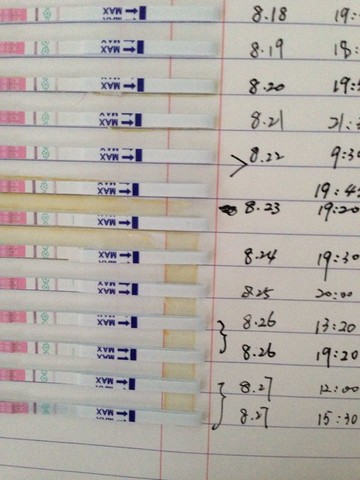 MAX 8.18 19:
MAX 8.19 18:
MAX 8.20 19:
MAX 8.21 21:
MAX 8.22 9:30
MAX 19:4
MAX 8.23 19:20
MAX 8.24 19:30
MAX 8.25 20:00
MAX 8.26 13:20
MAX 8.26 19:20
MAX 8.27 12:00
MAX 8.27 15:30